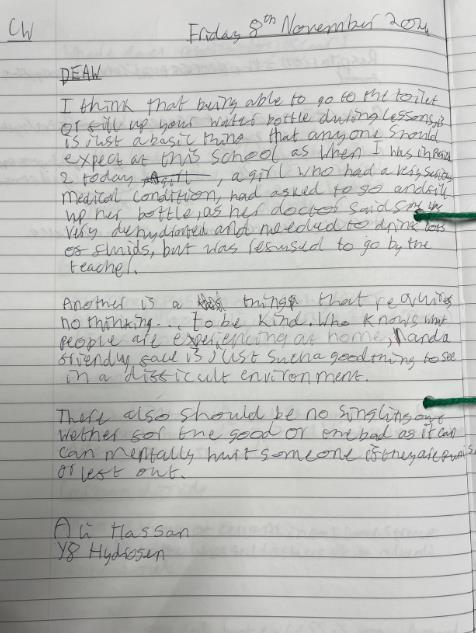 CW
Friday 8th November 2024
DEAW
I think that being able to go to the toilet
or fill up your water bottle during lessons
is just a basic thing that anyone should
expect at this school as when I was in Period
2 today, a girl who had a very serious
medical condition, had asked to go and fill
up her bottle, as her doctor said she was
very dehydrated and needed to drink lots
of fluids, but was refused to go by the
teacher.
Another is a things that requires
no thinking... to be kind. Who knows what
people are experiencing at home, and a
friendly face is just such a good thing to see
in a difficult environment.
There also should be no singling out
wether for the good or the bad as it can
can mentally hurt someone if they are
or left out.
Ali Hassan
Y8 Hydrogen